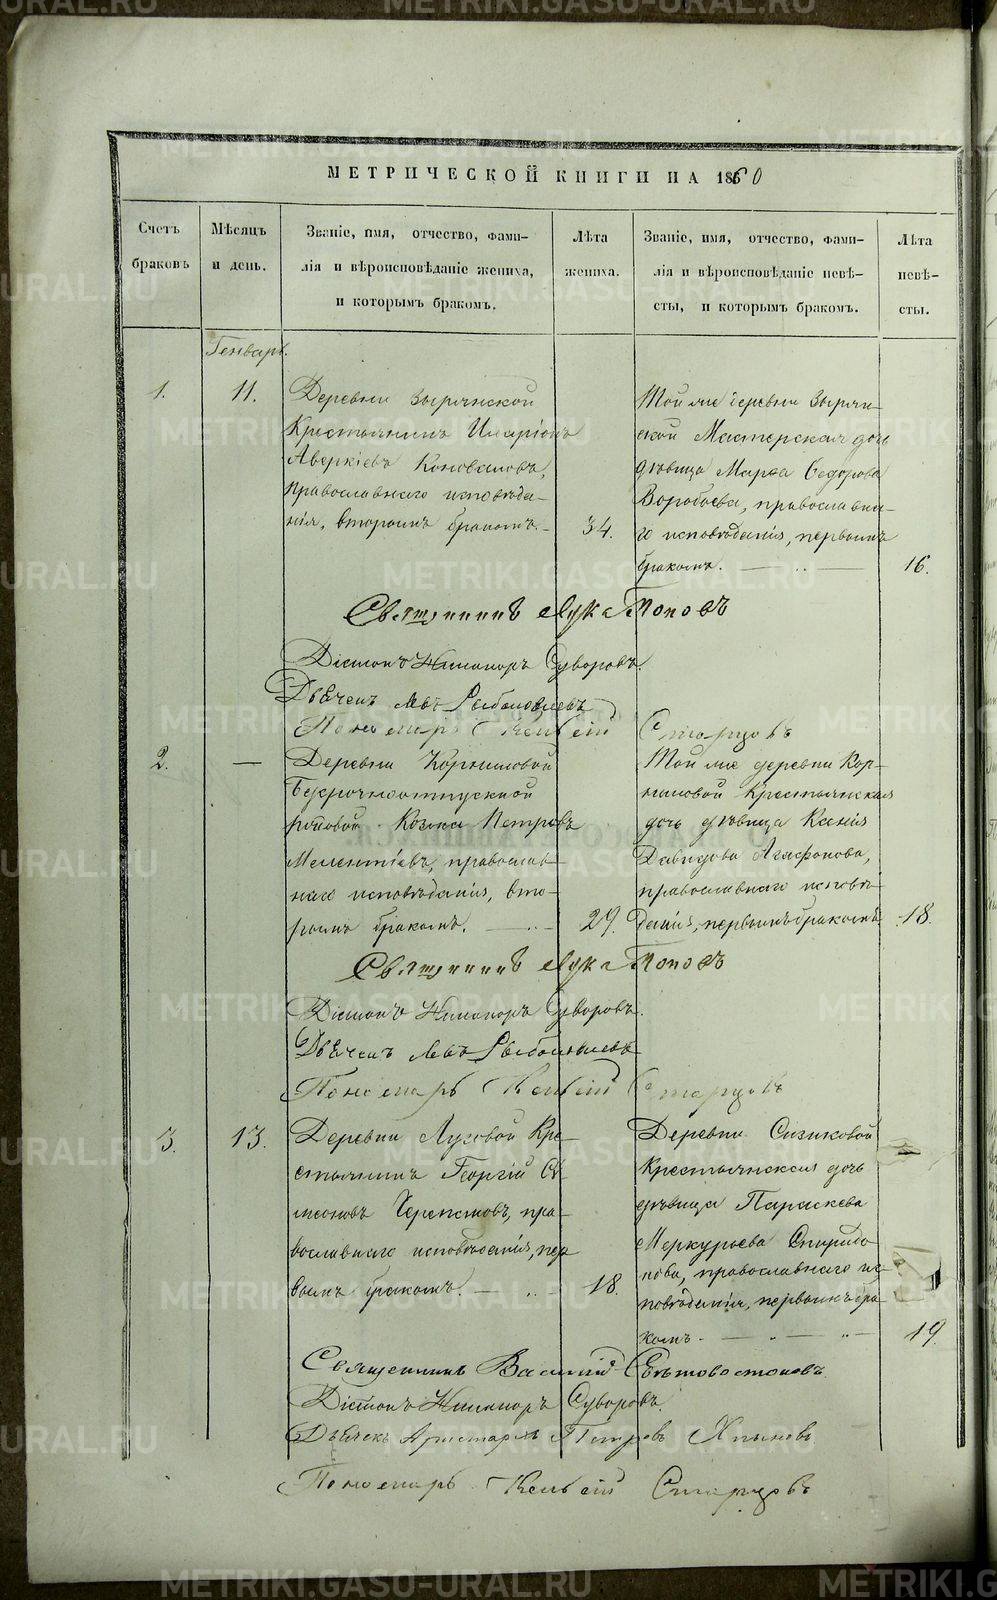 МЕТРИЧЕСКОЙ КНИГИ НА 1860
Счетъ браковъ
Мѣсяцъ и день.
Званіе, имя, отчество, фами-
лія и вѣроисповѣданіе жениха,
и которымъ бракомъ.
Лѣта жениха.
Званіе, имя, отчество, фами-
лія и вѣроисповѣданіе невѣ-
сты, и которымъ бракомъ.
Лѣта невѣ-
сты.
Генварь.
1.
11.
Деревни Зырянской
Крестьянинъ Иларіонъ
Аверкіевъ Коноваловъ,
православнаго исповѣда-
нія, вторымъ бракомъ.
34.
Той же деревни Зырян-
ской Мастерская дочь
дѣвица Марѳа Ѳедорова
Воробьева, православна-
го исповѣданія, первымъ
бракомъ.
16.
Священникъ Лука Поповъ
Діаконъ Никаноръ Суворовъ.
Дьячекъ Левъ
Пономарь Старцовъ
2.
—
Деревни Корниловой
Безсрочноотпускной
рядовой Козма Петровъ
Мелентіевъ, православ-
наго исповѣданія, вто-
рымъ бракомъ.
29.
Той же деревни Кор-
ниловой Крестьянская
дочь дѣвица Ксенія
Давидова Агафонова,
православнаго исповѣ-
данія, первымъ бракомъ
18.
Священникъ Лука Поповъ
Діаконъ Никаноръ Суворовъ.
Дьячекъ Левъ
Пономарь Старцовъ
3.
13.
Деревни Луговой Кре-
стьянинъ Георгій Си-
меоновъ Черепановъ, пра-
вославнаго исповѣданія, пер
вымъ бракомъ.
18.
Деревни Сизиковой
Крестьянская дочь
дѣвица Параскева
Меркурьева Спиридо
нова, православнаго ис-
повѣданія, первымъ бра-
комъ.
19.
Священникъ Василій Свѣтовостоковъ
Діаконъ Никаноръ Суворовъ.
Дьячекъ Аристархъ Петровъ
Пономарь Старцовъ
METRIKI.GASO-URAL.RU